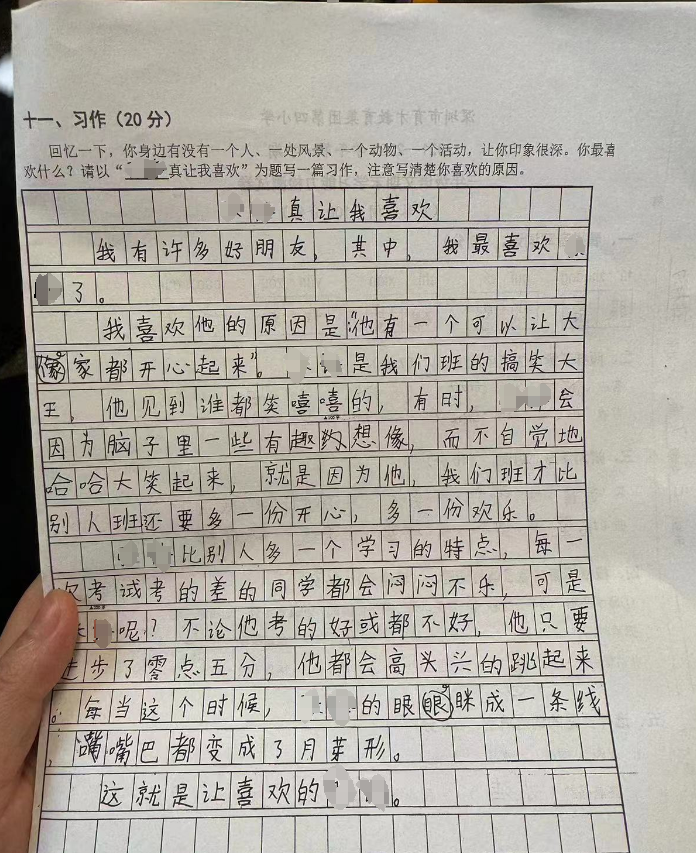 十一、习作（20分）
回忆一下，你身边有没有一个人、一处风景、一个动物、一个活动，让你印象很深。你最喜
欢什么？请以“真让我喜欢”为题写一篇习作，注意写清楚你喜欢的原因。
真让我喜欢
我有许多好朋友，其中，我最喜欢
了。
我喜欢他的原因是“他有一个可以让大
家都开心起来”。是我们班的搞笑大
王，他见到谁都笑嘻嘻的，有时，会
因为脑子里一些有趣的想像，而不自觉地
哈哈大笑起来，就是因为他，我们班才比
别人班还要多一份开心，多一份欢乐。
比别人多一个学习的特点，每一
次考试考的差的同学都会闷闷不乐，可是
呢？不论他考的好或都不好，他只要
进步了零点五分，他都会高头兴的跳起来
。每当这个时候，的眼眼眯成一条线
，嘴嘴巴都变成了月芽形。
这就是让喜欢的。